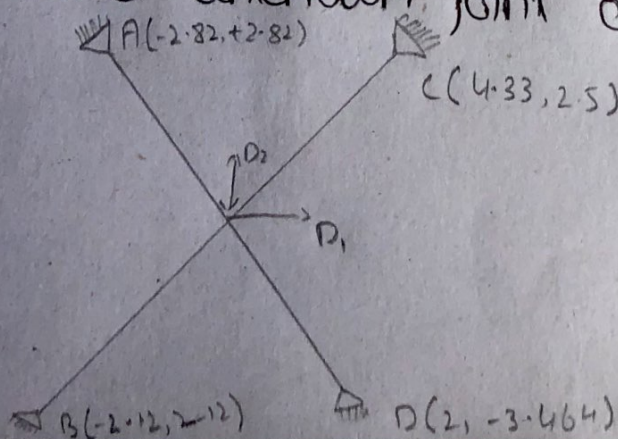 joint
A(-2.82,+2.82)
C(4.33, 2.5)
D2
D1
B(-2.12,2-12)
D(2, -3.464)